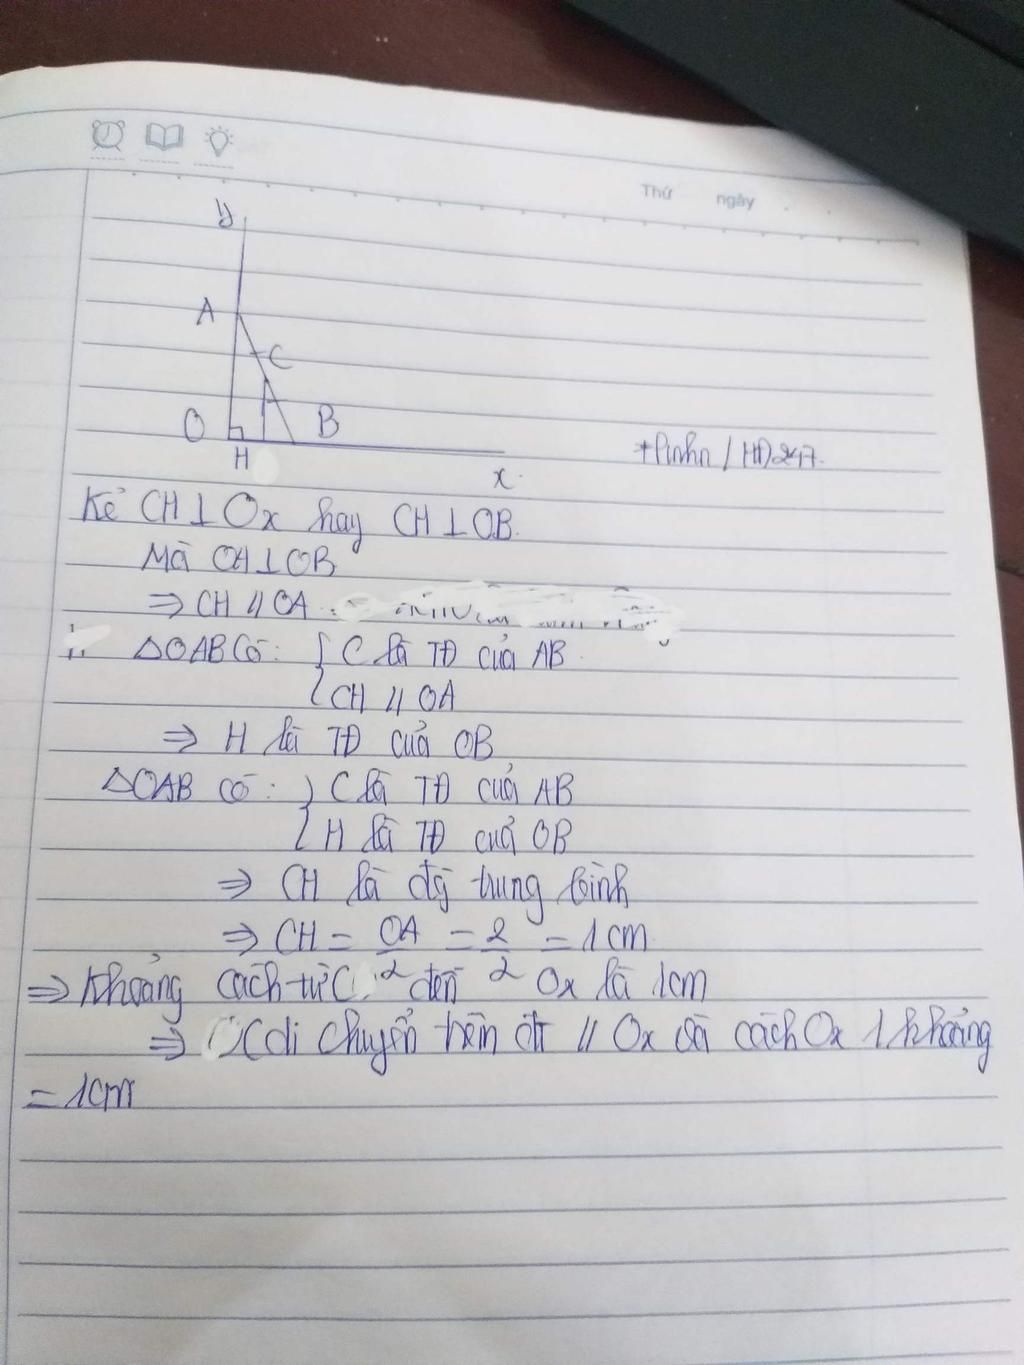 Thứ ngày
y
A
C
O
B
H
x
+Pinhn / HĐ247.
Kẻ CH⊥Ox hay CH⊥OB.
Mà OA⊥OB
⇒ CH // OA
ΔOAB có: { C là TĐ của AB
CH // OA
⇒ H là TĐ của OB
ΔOAB có: { C là TĐ của AB
H là TĐ của OB
⇒ CH là đg trung bình
⇒ CH = OA/2 = 2/2 = 1cm
⇒ Khoảng cách từ C đến Ox là 1cm
⇒ C di chuyển trên đt // Ox và cách Ox 1 khoảng
= 1cm